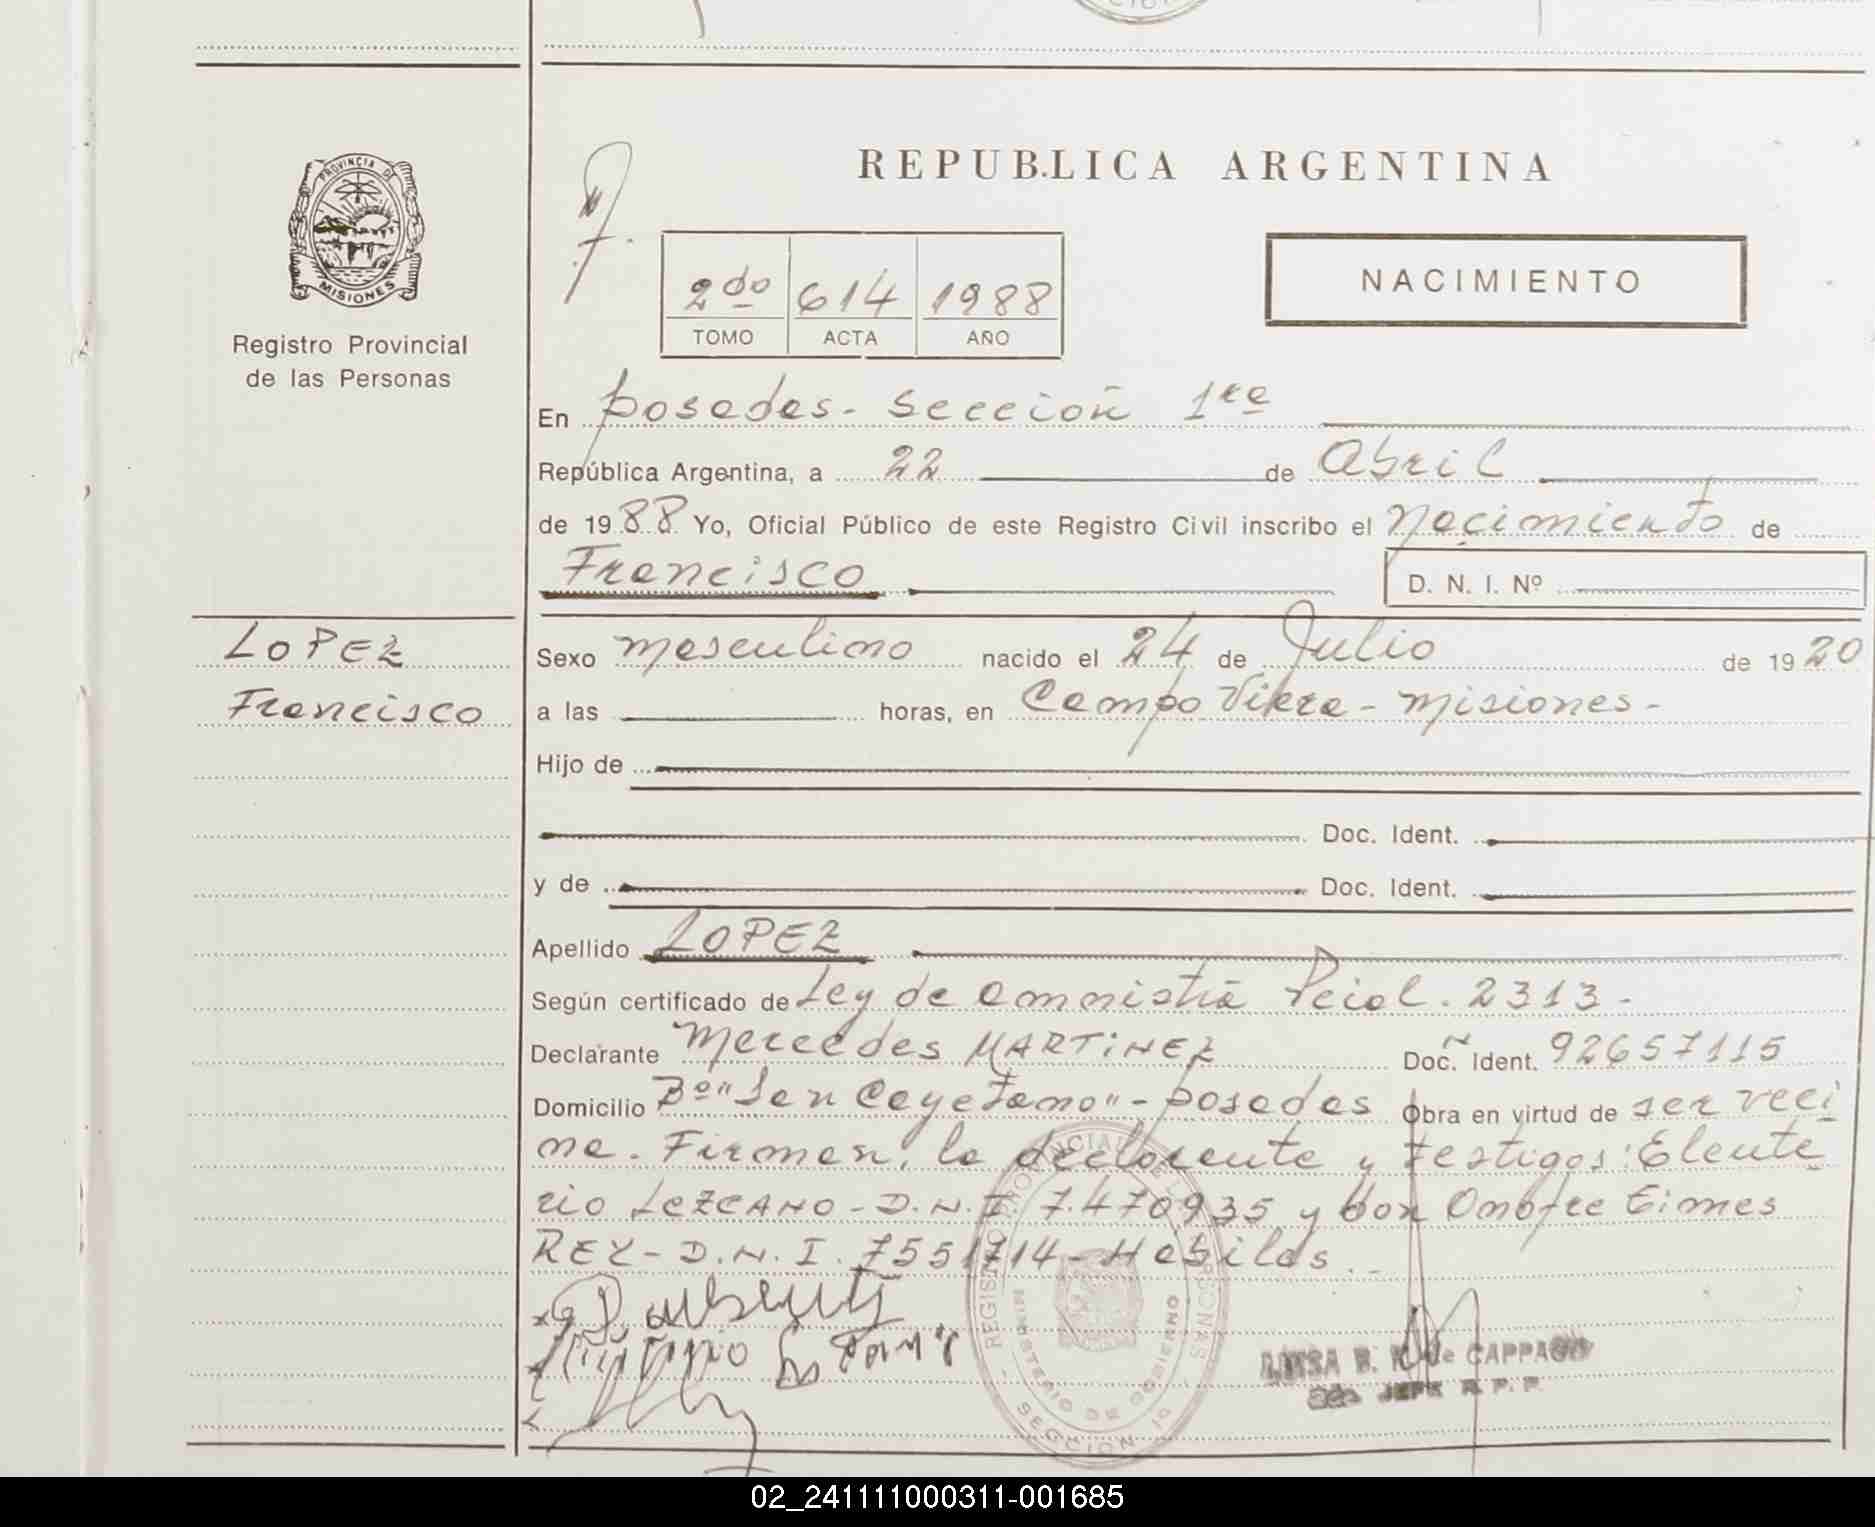 REPUBLICA ARGENTINA
PROVINCIA DE
MISIONES
Registro Provincial
de las Personas
2do 614 1988
TOMO ACTA AÑO
NACIMIENTO
En Posadas - Sección 1ra
República Argentina, a 22 de Abril
de 1988 Yo, Oficial Público de este Registro Civil inscribo el Nacimiento de
Francisco
D. N. I. Nº
LOPEZ
Francisco
Sexo masculino nacido el 24 de Julio de 1920
a las horas, en Campo Viera - Misiones -
Hijo de
Doc. Ident.
y de Doc. Ident.
Apellido LOPEZ
Según certificado de Ley de amnistía Pcial. 2313 -
Declarante Mercedes MARTINEZ Doc. Ident. 92657115
Domicilio Bº "San Cayetano" - Posadas Obra en virtud de ser veci
na. Firman, la declarante y testigos: Eleute
rio LEZCANO - D.N.I 7.470935 y don Onofre Gimes
REY - D.N.I. 7551714 - Hábiles.
REGISTRO PROVINCIAL DE LAS PERSONAS
MINISTERIO DE GOBIERNO
SECCION 1a
LUISA B. de CAPPAGO
JEFE R. P. P.
02_241111000311-001685